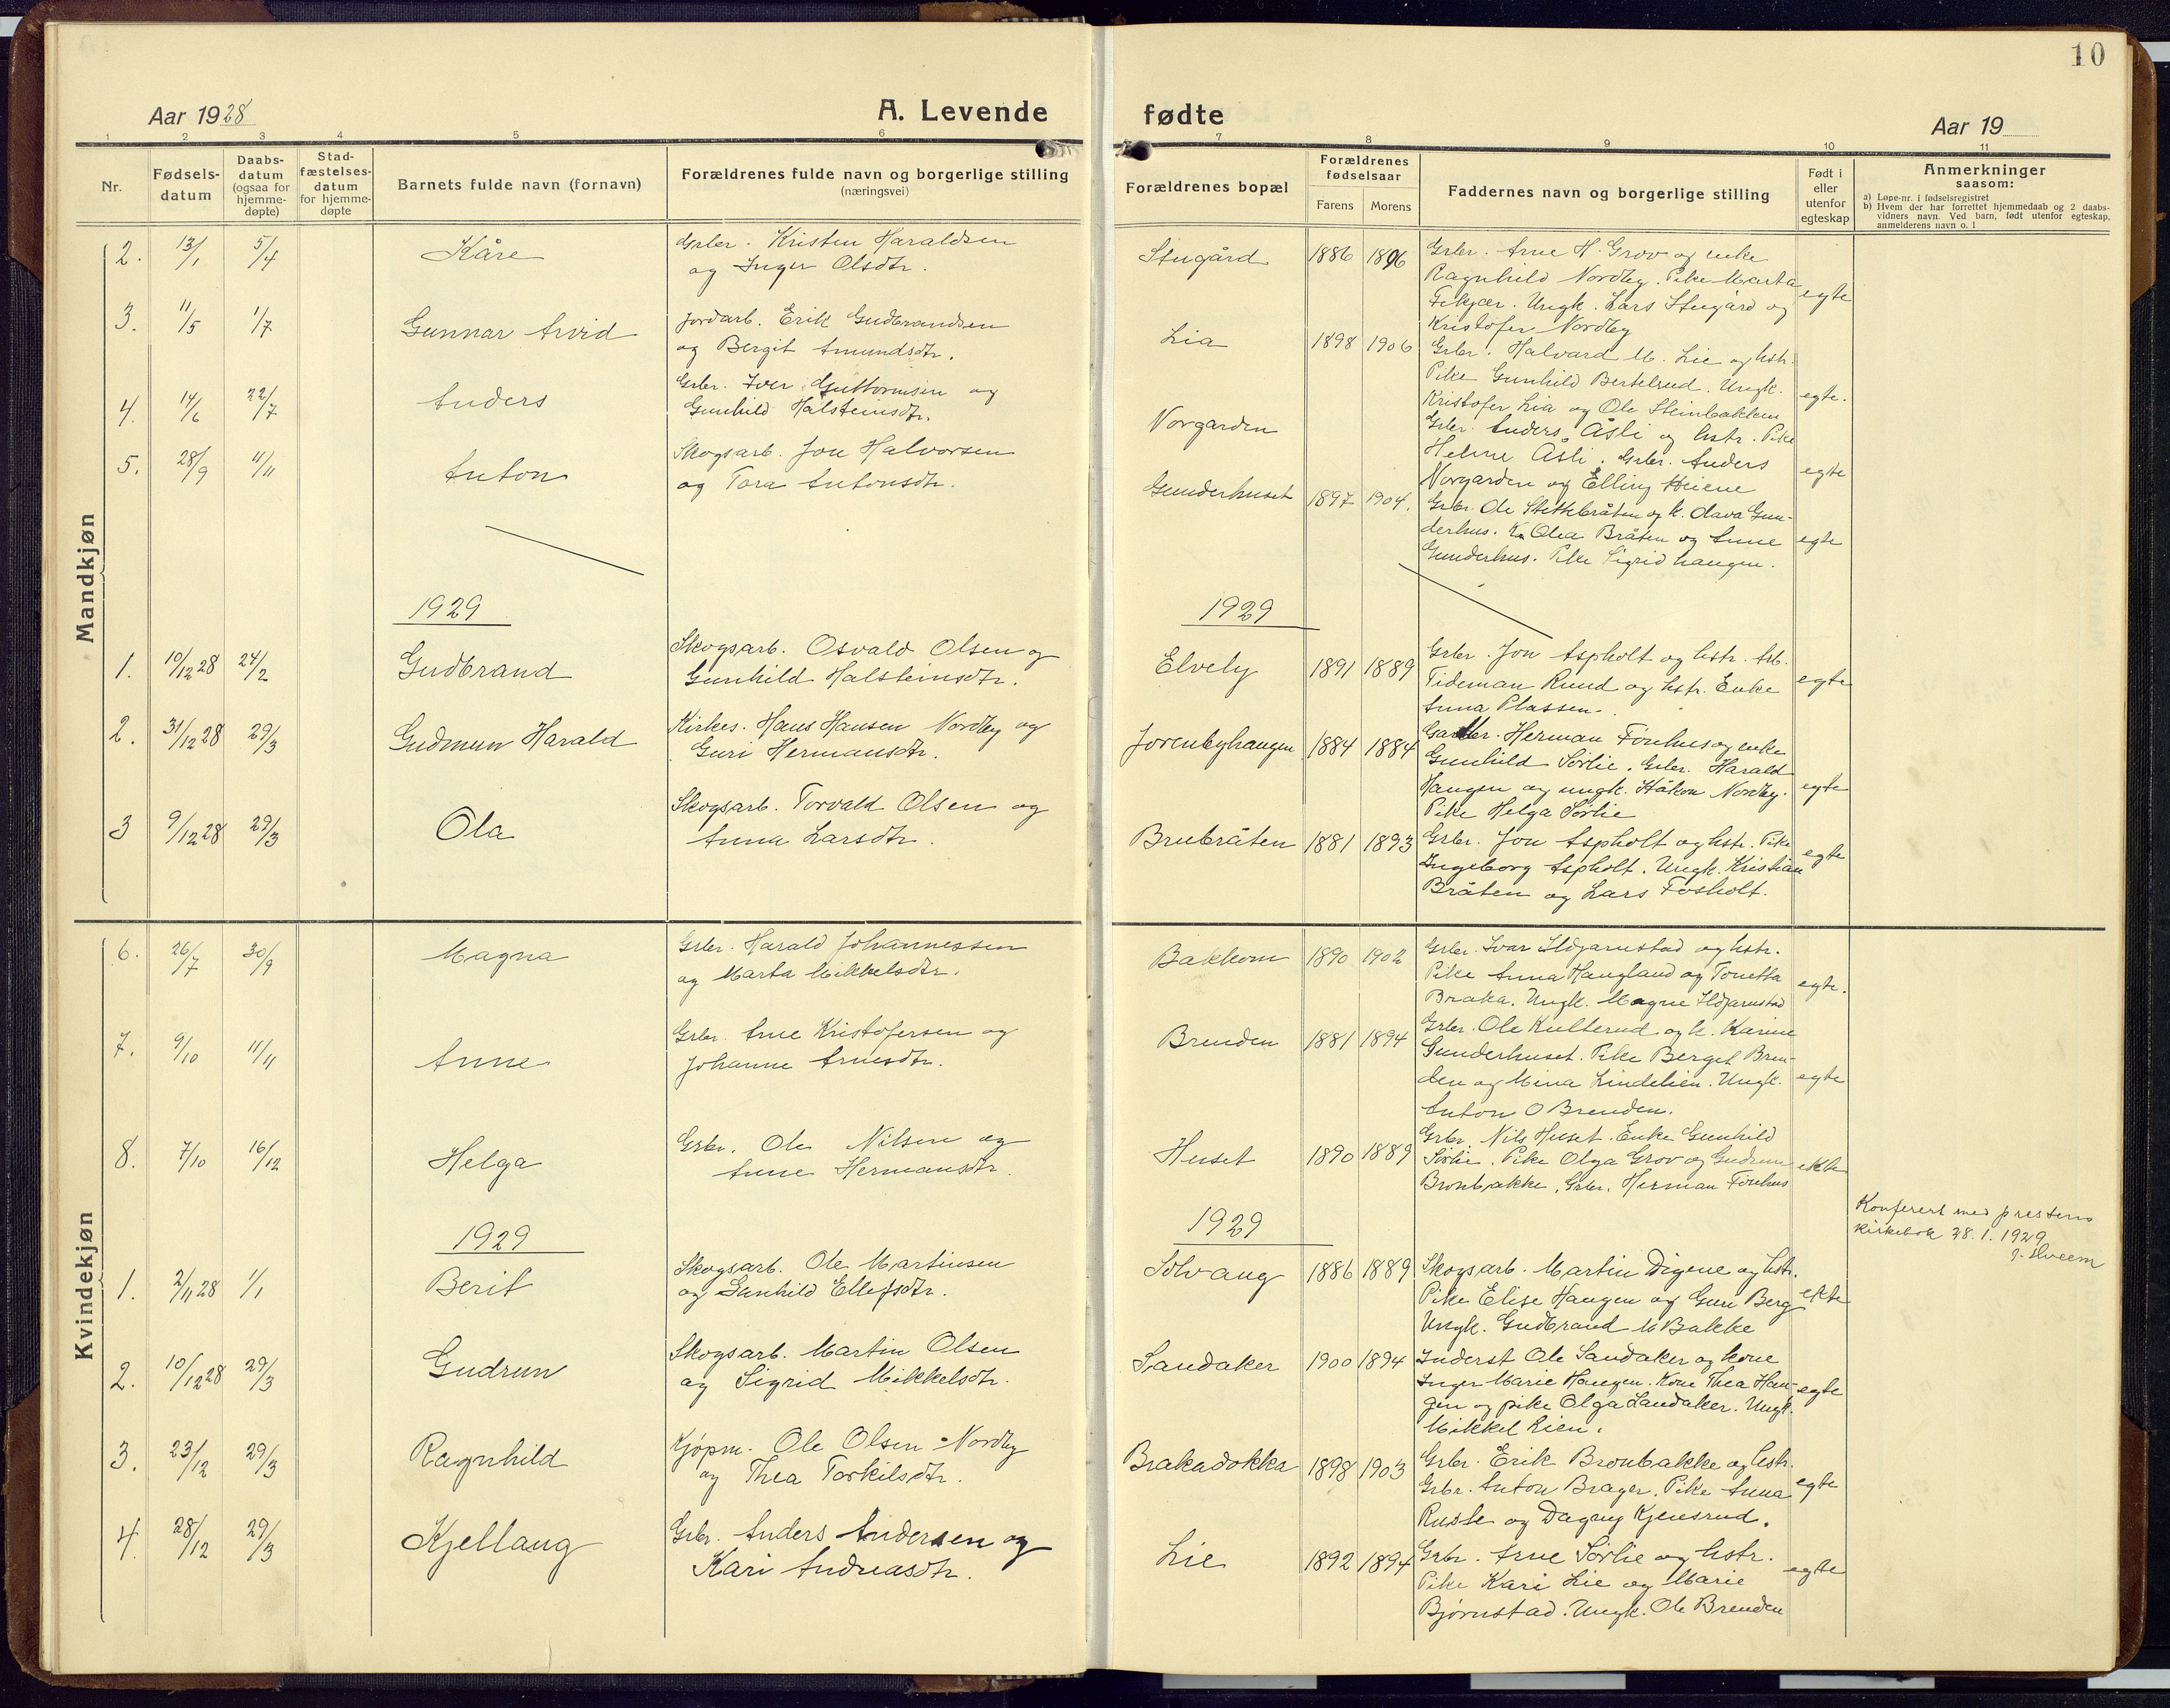 10
Aar 1928
A. Levende
fødte
Aar 19
1 2 3 4 5 6 7 8 9 10 11
Nr.
Fødsels-
datum
Daabs-
datum
(ogsaa for
hjemme-
døpte)
Stad-
fæstelses-
datum
for hjemme-
døpte
Barnets fulde navn (fornavn)
Forældrenes fulde navn og borgerlige stilling
(næringsvei)
Forældrenes bopæl
Forældrenes
fødselsaar
Farens Morens
Faddernes navn og borgerlige stilling
Født i
eller
utenfor
egteskap
Anmerkninger
saasom:
a) Løpe-nr. i fødselsregistret
b) Hvem der har forrettet hjemmedaab og 2 daabs-
vidners navn. Ved barn, født utenfor egteskap,
anmelderens navn o. l
Mandkjøn
2. 13/1 5/4 Kåre
Grbr. Kristen Haraldsen
og Inger Olsdtr.
Stugård 1886 1896
Grbr. Arne H. Grov og enke
Ragnhild Nordby. Pike Marta
Fekjær. Ungk. Lars Stugård og
Kristofer Nordby
egte
3. 11/5 1/7 Gunnar Arvid
Jordarb. Erik Gudbrandsen
og Bergit Amundsdtr.
Lia 1898 1906
Grbr. Halvard M. Lie og hstr.
Pike Gunhild Bertelrud. Ungk.
Kristofer Lia og Ole Steinbakken
egte.
4. 14/6 22/7 Anders
Grbr. Iver Guttormsen og
Gunhild Halsteinsdtr.
Norgarden
Grbr. Anders Åsli og hstr. Pike
Helene Åsli. Grbr. Anders
Norgarden og Elling Heiene
egte
5. 28/9 4/11 Anton
Skogsarb. Jon Halvorsen
og Tora Antonsdtr.
Gunderhuset 1897 1904.
Grbr. Ole Stekkebråten og k. Olava Gun-
derhus. K. Olea Bråten og Anne
Gunderhus. Pike Sigrid Haugen.
egte
1929
1929
1. 10/12 28 24/2 Gudbrand
Skogsarb. Osvald Olsen og
Gunhild Halsteinsdtr.
Elvely 1891 1889
Grbr. Jon Aspholt og hstr. Arb.
Tideman Rund og hstr. Enke
Anna Plassen.
egte
2. 31/12 28 29/3 Gudmun Harald
Kirkes. Hans Hansen Nordby og
Guri Hermansdtr.
Jorenbyhaugen 1884 1884
Herman Fönhus og enke
Gunhild Sørlie. Grbr. Harald
Haugen og ungk. Håkon Nordby.
Pike Helga Sørlie
egte
3 9/12 28 29/3 Ola
Skogsarb. Torvald Olsen og
Anna Larsdtr.
Brubråten 1881 1893
Grbr. Jon Aspholt og hstr. Pike
Ingeborg Aspholt. Ungk. Kristian
Bråten og Lars Fosholt.
egte
Kvindekjøn
6. 26/7 30/9 Magna
Grbr. Harald Johannessen
og Marta Mikkelsdtr.
Bakkom 1890 1902
Grbr. Ivar Ildjarnstad og hstr.
Pike Anna Haugland og Tonetta
Braka. Ungk. Magne Ildjarnstad
egte.
7. 9/10 11/11 Anne
Grbr. Arne Kristofersen og
Johanne Arnesdtr.
Brenden 1881 1894
Grbr. Ole Kulterud og k. Karine
Gunderhuset. Pike Berget Bren-
den og Mina Lindelien. Ungk.
Anton O Brenden.
egte
8. 7/10 16/12 Helga
Grbr. Ole Nilsen og
Anne Hermansdtr.
Huset 1890 1889
Grbr. Nils Huset. Enke Gunhild
Sørlie. Pike Olga Grov og Gudrun
Bronbakke. Grbr. Herman Fönhus
ekte
1929
1929
Konferert med prestens
kirkebok 28.1.1929
1. 2/11 28 1/1 Berit
Skogsarb. Ole Martinsen
og Gunhild Ellefsdtr.
Solvang 1886 1889
Skogsarb. Martin Digene og hstr.
Pike Elise Haugen og Guri Berg
Ungk. Gudbrand M Bakke
ekte
2. 10/12 28 29/3 Gudrun
Skogsarb. Martin Olsen
og Sigrid Mikkelsdtr.
Sandaker 1900 1894
Inderst Ole Sandaker og kone
Inger Marie Haugen. Kone Thea Hau-
gen og pike Olga Sandaker. Ungk.
Mikkel Lien.
egte
3. 23/12 29/3 Ragnhild
Kjøpm. Ole Olsen Nordby
og Thea Torkilsdtr.
Brakadokka 1898 1903
Grbr. Erik Bronbakke og hstr.
Grbr. Anton Brager. Pike Anna
Ruste og Dagny Kjensrud.
egte
4. 28/12 29/3 Kjellaug
Grbr. Anders Andersen og
Kari Andreasdtr.
Lie 1892 1894
Grbr. Arne Sørlie og hstr.
Pike Kari Lie og Marie
Bjørnstad. Ungk. Ole Brenden
egte